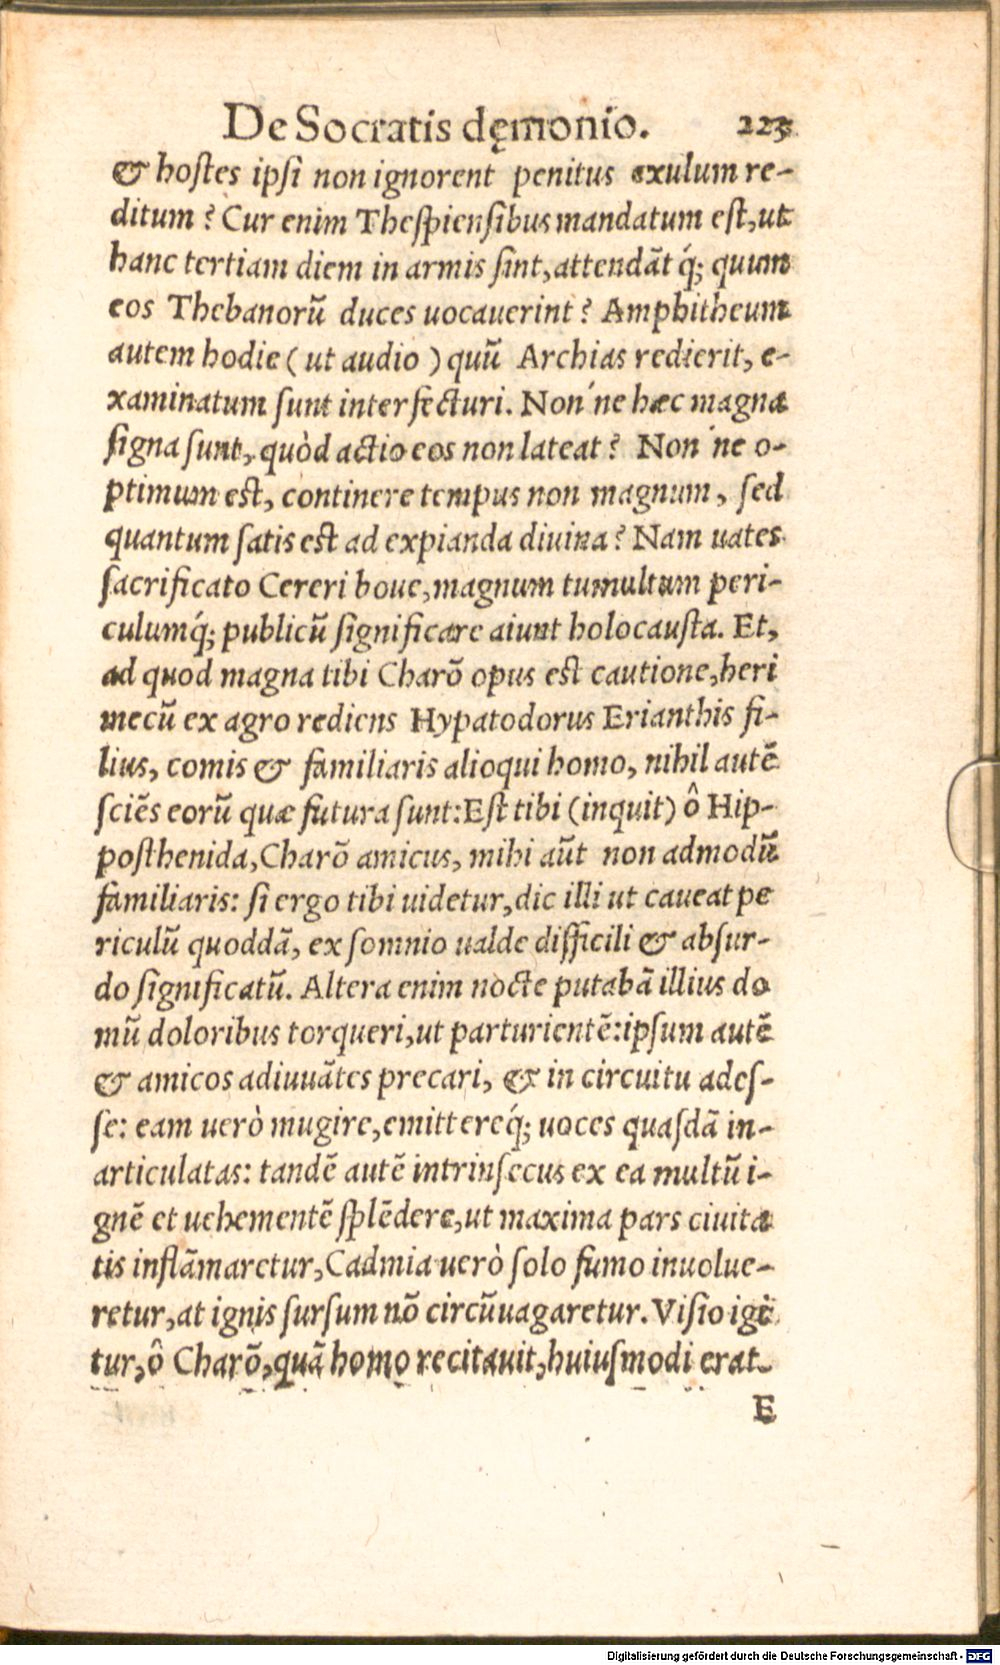 De Socratis dęmonio. 223
& hostes ipsi non ignorent penitus exulum re-
ditum? Cur enim Thespiensibus mandatum est, ut
hanc tertiam diem in armis sint, attendāt q́; quum
eos Thebanorū duces uocauerint? Amphitheum
autem hodie (ut audio) quū Archias redierit, e-
xaminatum sunt interfecturi. Non ́ne hæc magna
signa sunt, quòd actio eos non lateat? Non ́ne o-
ptimum est, continere tempus non magnum, sed
quantum satis est ad expianda diuina? Nam uates
sacrificato Cereri boue, magnum tumultum peri-
culumq́; publicū significare aiunt holocausta. Et,
ad quod magna tibi Charō opus est cautione, heri
mecū ex agro rediens Hypatodorus Erianthis fi-
lius, comis & familiaris alioqui homo, nihil autē
sciēs eorū quæ futura sunt: Est tibi (inquit) ô Hip-
posthenida, Charō amicus, mihi aūt non admodū
familiaris: si ergo tibi uidetur, dic illi ut caueat pe
riculū quoddā, ex somnio ualde difficili & absur-
do significatū. Altera enim nocte putabā illius do
mū doloribus torqueri, ut parturientē: ipsum autē
& amicos adiuuātes precari, & in circuitu ades-
se: eam uerò mugire, emittereq́; uoces quasdā in-
articulatas: tandē autē intrinsecus ex ea multū i-
gnē et uehementē splēdere, ut maxima pars ciuita
tis inflāmaretur, Cadmia uerò solo fumo inuolue-
retur, at ignis sursum nō circūuagaretur. Visio igi
tur, ô Charō, quā homo recitauit, huiusmodi erat.
E
Digitalisierung gefördert durch die Deutsche Forschungsgemeinschaft - DFG